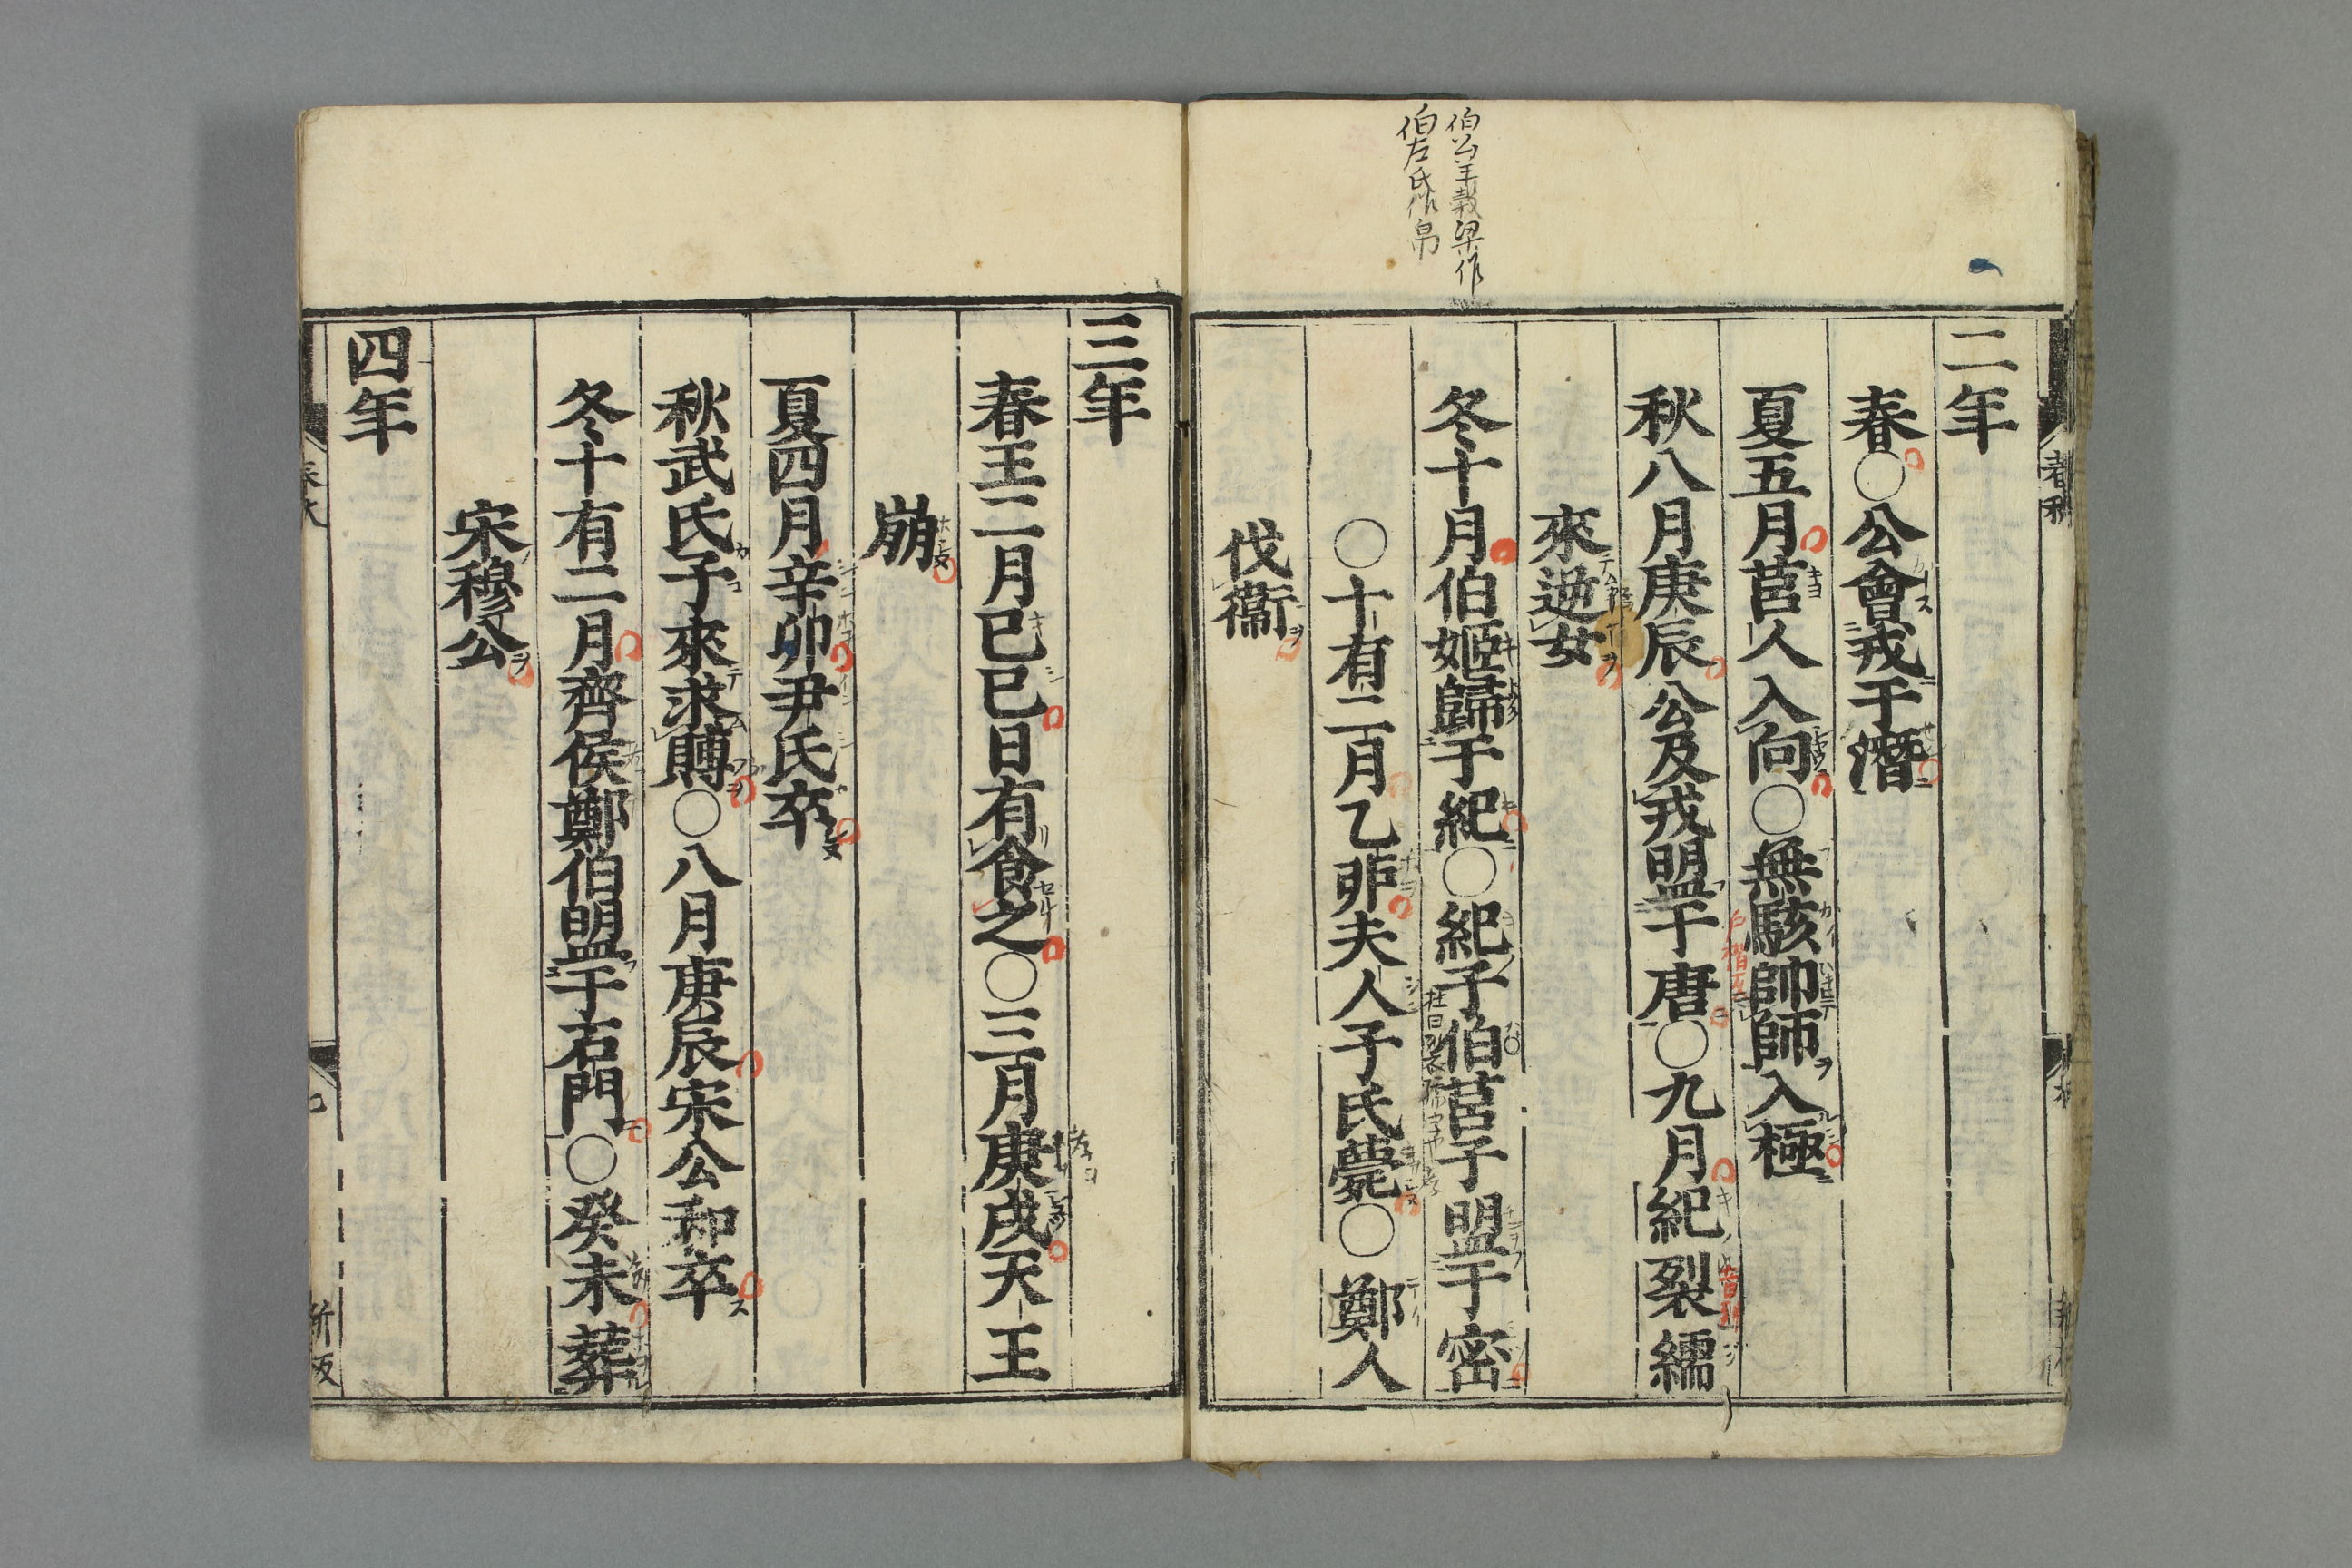 伯公羊穀梁作
伯左氏作帛
二年
春○公會戎于潛
夏五月莒人入向○無駭帥師入極
秋八月庚辰公及戎盟于唐○九月紀裂繻
來逆女
冬十月伯姬歸于紀○紀子伯莒子盟于密
○十有二月乙卯夫人子氏薨○鄭人
伐衞
三年
春王二月己巳日有食之○三月庚戌天王
崩
夏四月辛卯尹氏卒
秋武氏子來求賻○八月庚辰宋公和卒
冬十有二月齊侯鄭伯盟于石門○癸未葬
宋穆公
四年